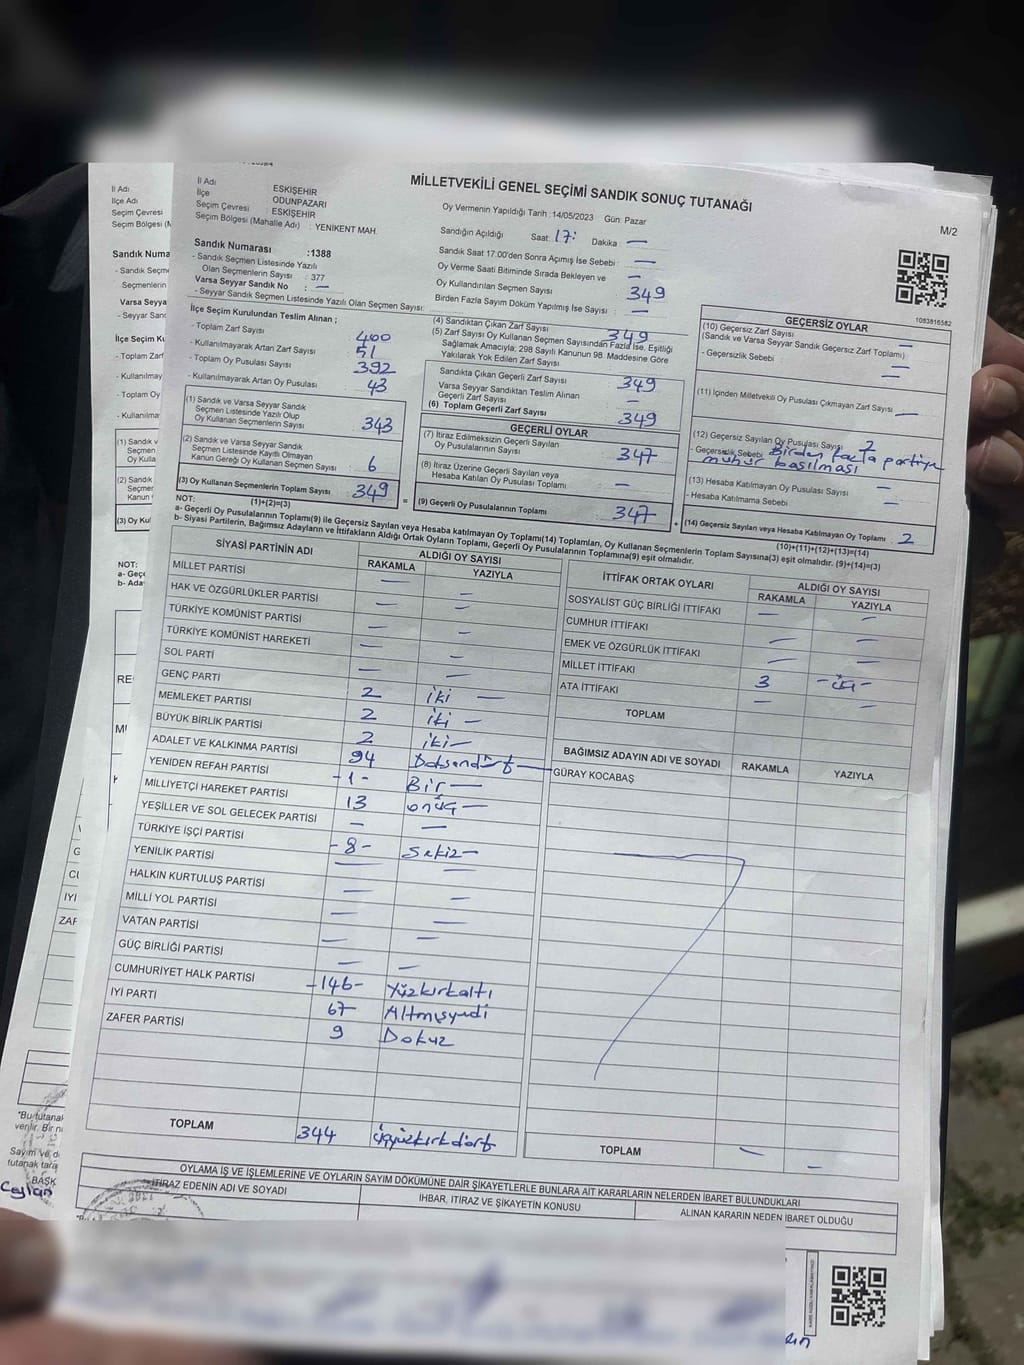 MİLLETVEKİLİ GENEL SEÇİMİ SANDIK SONUÇ TUTANAĞI
M/2
İl Adı
İlçe
Seçim Çevresi
Seçim Bölgesi (Mahalle Adı)
ESKİŞEHİR
ODUNPAZARI
: ESKİŞEHİR
: YENİKENT MAH.
Oy Vermenin Yapıldığı Tarih :14/05/2023 Gün: Pazar
Sandığın Açıldığı Saat: 17: Dakika —
Sandık Saat 17.00'den Sonra Açımış İse Sebebi : —
Oy Verme Saati Bitiminde Sırada Bekleyen ve —
Oy Kullandırılan Seçmen Sayısı 349
Birden Fazla Sayım Döküm Yapılmış İse Sayısı : —
Sandık Numarası :1388
- Sandık Seçmen Listesinde Yazılı
Olan Seçmenlerin Sayısı : 377
Varsa Seyyar Sandık No : —
- Seyyar Sandık Seçmen Listesinde Yazılı Olan Seçmen Sayısı:
1083816582
İlçe Seçim Kurulundan Teslim Alınan ;
- Toplam Zarf Sayısı 400
- Kullanılmayarak Artan Zarf Sayısı 51
- Toplam Oy Pusulası Sayısı 392
- Kullanılmayarak Artan Oy Pusulası 43
(1) Sandık ve Varsa Seyyar Sandık
Seçmen Listesinde Yazılı Olup
Oy Kullanan Seçmenlerin Sayısı 343
(2) Sandık ve Varsa Seyyar Sandık
Seçmen Listesinde Kayıtlı Olmayan
Kanun Gereği Oy Kullanan Seçmen Sayısı : 6
(3) Oy Kullanan Seçmenlerin Toplam Sayısı 349
(1)+(2)=(3)
(4) Sandıktan Çıkan Zarf Sayısı 349
(5) Zarf Sayısı Oy Kullanan Seçmen Sayısından Fazla İse, Eşitliği
Sağlamak Amacıyla; 298 Sayılı Kanunun 98. Maddesine Göre
Yakılarak Yok Edilen Zarf Sayısı
Sandıkta Çıkan Geçerli Zarf Sayısı 349
Varsa Seyyar Sandıktan Teslim Alınan
Geçerli Zarf Sayısı —
(6) Toplam Geçerli Zarf Sayısı 349
GEÇERLİ OYLAR
(7) İtiraz Edilmeksizin Geçerli Sayılan
Oy Pusulalarının Sayısı: 347
(8) İtiraz Üzerine Geçerli Sayılan veya
Hesaba Katılan Oy Pusulası Toplamı —
= (9) Geçerli Oy Pusulalarının Toplamı 347
GEÇERSİZ OYLAR
(10) Geçersiz Zarf Sayısı
(Sandık ve Varsa Seyyar Sandık Geçersiz Zarf Toplamı) —
- Geçersizlik Sebebi : —
(11) İçinden Milletvekili Oy Pusulası Çıkmayan Zarf Sayısı —
(12) Geçersiz Sayılan Oy Pusulası Sayısı : 2
- Geçersizlik Sebebi Birden fazla partiye
mühür basılması
(13) Hesaba Katılmayan Oy Pusulası Sayısı —
- Hesaba Katılmama Sebebi —
+ (14) Geçersiz Sayılan veya Hesaba Katılmayan Oy Toplamı : 2
(10)+(11)+(12)+(13)=(14)
NOT:
a- Geçerli Oy Pusulalarının Toplamı(9) ile Geçersiz Sayılan veya Hesaba katılmayan Oy Toplamı(14) Toplamları, Oy Kullanan Seçmenlerin Toplam Sayısına(3) eşit olmalıdır. (9)+(14)=(3)
b- Siyasi Partilerin, Bağımsız Adayların ve İttifakların Aldığı Ortak Oyların Toplamı, Geçerli Oy Pusulalarının Toplamına(9) eşit olmalıdır.
SİYASİ PARTİNİN ADI ALDIĞI OY SAYISI
RAKAMLA YAZIYLA
MİLLET PARTİSİ — —
HAK VE ÖZGÜRLÜKLER PARTİSİ — —
TÜRKİYE KOMÜNİST PARTİSİ — —
TÜRKİYE KOMÜNİST HAREKETİ — —
SOL PARTİ — —
GENÇ PARTİ 2 iki —
MEMLEKET PARTİSİ 2 iki —
BÜYÜK BİRLİK PARTİSİ 2 iki —
ADALET VE KALKINMA PARTİSİ 94 Doksandört —
YENİDEN REFAH PARTİSİ -1- Bir —
MİLLİYETÇİ HAREKET PARTİSİ 13 onüç —
YEŞİLLER VE SOL GELECEK PARTİSİ — —
TÜRKİYE İŞÇİ PARTİSİ -8- Sekiz —
YENİLİK PARTİSİ — —
HALKIN KURTULUŞ PARTİSİ — —
MİLLİ YOL PARTİSİ — —
VATAN PARTİSİ — —
GÜÇ BİRLİĞİ PARTİSİ — —
CUMHURİYET HALK PARTİSİ -146- Yüzkırkaltı
İYİ PARTİ 67 Altmışyedi
ZAFER PARTİSİ 9 Dokuz
TOPLAM 344 üçyüzkırkdört
İTTİFAK ORTAK OYLARI ALDIĞI OY SAYISI
RAKAMLA YAZIYLA
SOSYALİST GÜÇ BİRLİĞİ İTTİFAKI — —
CUMHUR İTTİFAKI — —
EMEK VE ÖZGÜRLÜK İTTİFAKI — —
MİLLET İTTİFAKI 3
ATA İTTİFAKI — —
TOPLAM
BAĞIMSIZ ADAYIN ADI VE SOYADI RAKAMLA YAZIYLA
GÜRAY KOCABAŞ
TOPLAM — —
OYLAMA İŞ VE İŞLEMLERİNE VE OYLARIN SAYIM DÖKÜMÜNE DAİR ŞİKAYETLERLE BUNLARA AİT KARARLARIN NELERDEN İBARET BULUNDUKLARI
İTİRAZ EDENİN ADI VE SOYADI
İHBAR, İTİRAZ VE ŞİKAYETİN KONUSU
ALINAN KARARIN NEDEN İBARET OLDUĞU
İl Adı
İlçe Adı
Seçim Çevresi
Seçim Bölgesi (M
NOT:
ZAF
BAŞK
Ceylan